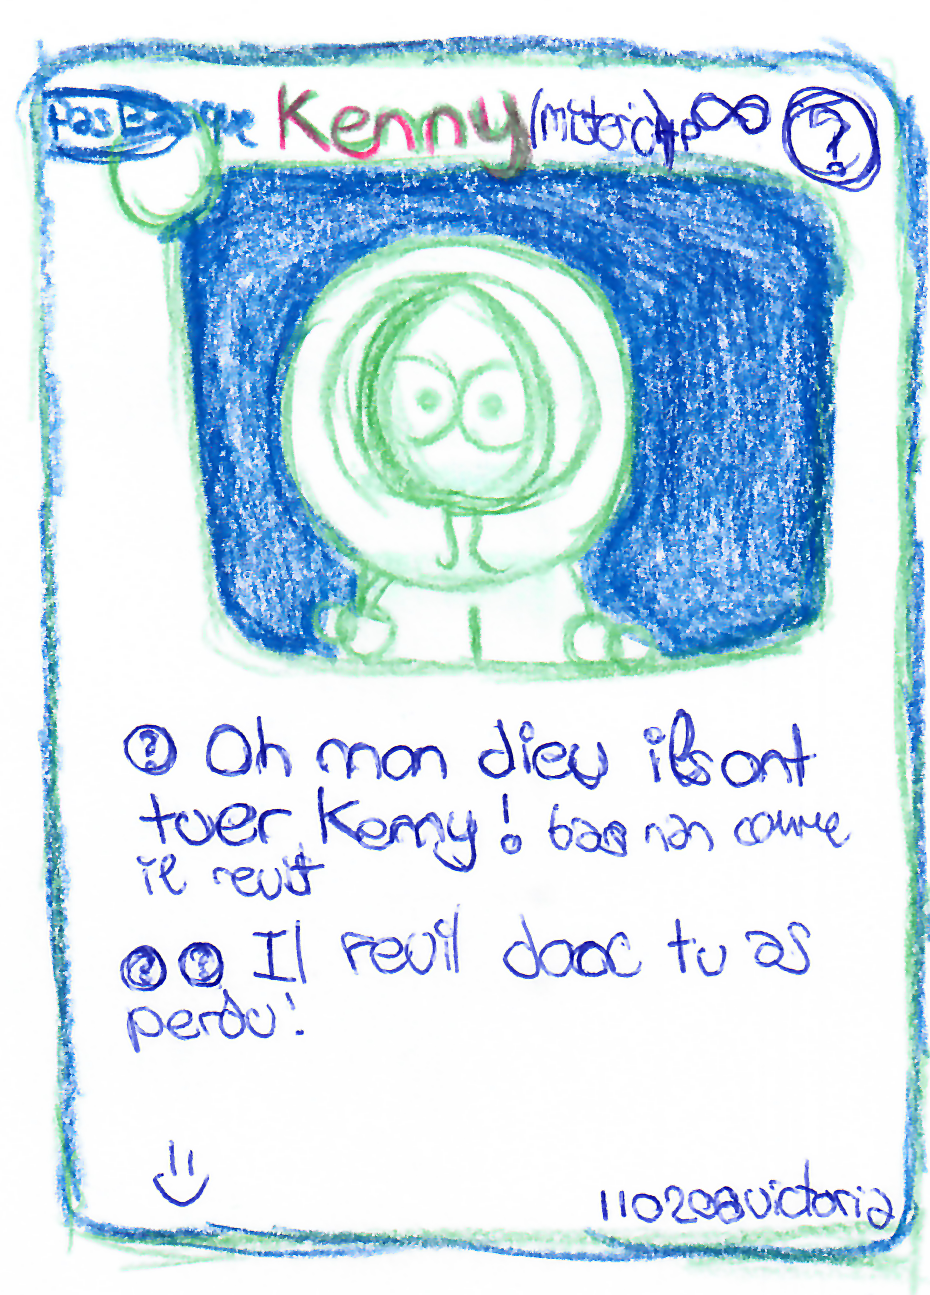 Pas Basique Kenny (misterio) HP ∞ ?
? Oh mon dieu ils ont
tuer Kenny! baa nan comme
il revit
? ? Il revil donc tu as
perdu!
110208victoria